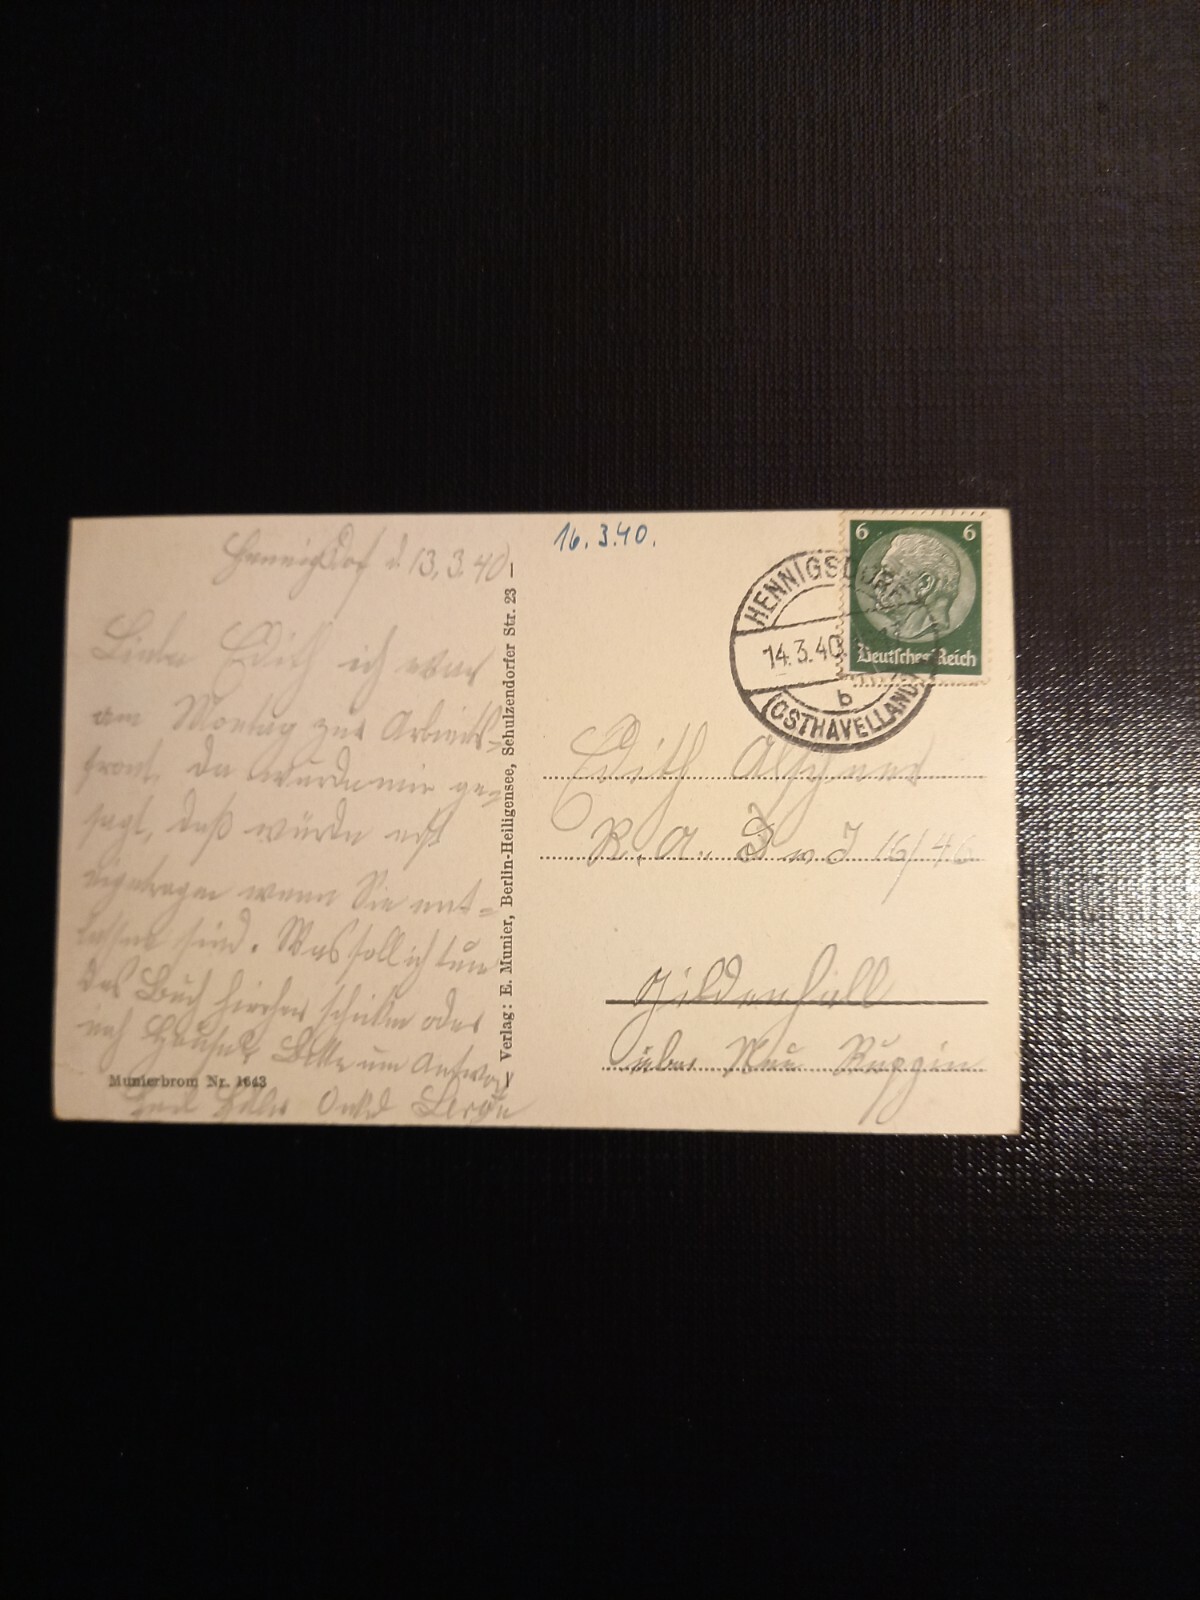 Hennigsdorf d. 13.3.40
Liebe Edith ich war
am Montag zur Arbeits-
front. Da wurde mir ge-
sagt, daß würde erst
eingetragen wenn Sie ent-
lassen sind. Was soll ich tun
das Buch hierher schicken oder
nach Hause? Bitte um Antwort
Munierbrom Nr. 1643
Verlag: E. Munier, Berlin-Heiligensee, Schulzendorfer Str. 23
16.3.40.
HENNIGSDORF
14.3.40
b
(OSTHAVELLAND)
6 6
Deutsches Reich
Edith
R. A. D. w J 16/46
Gildenhall
über Neu Ruppin